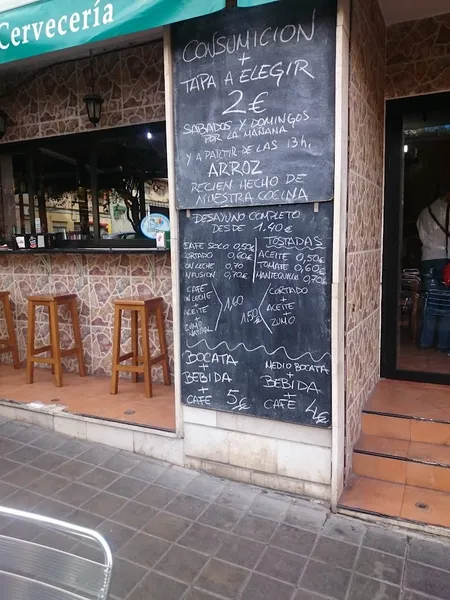 Cervecería
CONSUMICION
+
TAPA A ELEGIR
2 €
SABADOS Y DOMINGOS
POR LA MAÑANA
Y A PARTIR DE LAS 13 h.
ARROZ
RECIEN HECHO DE
NUESTRA COCINA
DESAYUNO COMPLETO
DESDE 1.40 €
CAFE SOLO 0,50€
CORTADO 0,60€
CON LECHE 0,70
INFUSION 0,70€
TOSTADAS
ACEITE 0,50€
TOMATE 0,60€
MANTEQUILLA 0,70€
CAFE
CON LECHE
+
ACEITE
+
ZUMO
NATURAL
1,60
1,50
CORTADO
+
ACEITE
+
ZUMO
BOCATA
+
BEBIDA
+
CAFE 5€
MEDIO BOCATA
+
BEBIDA
+
CAFE 4€